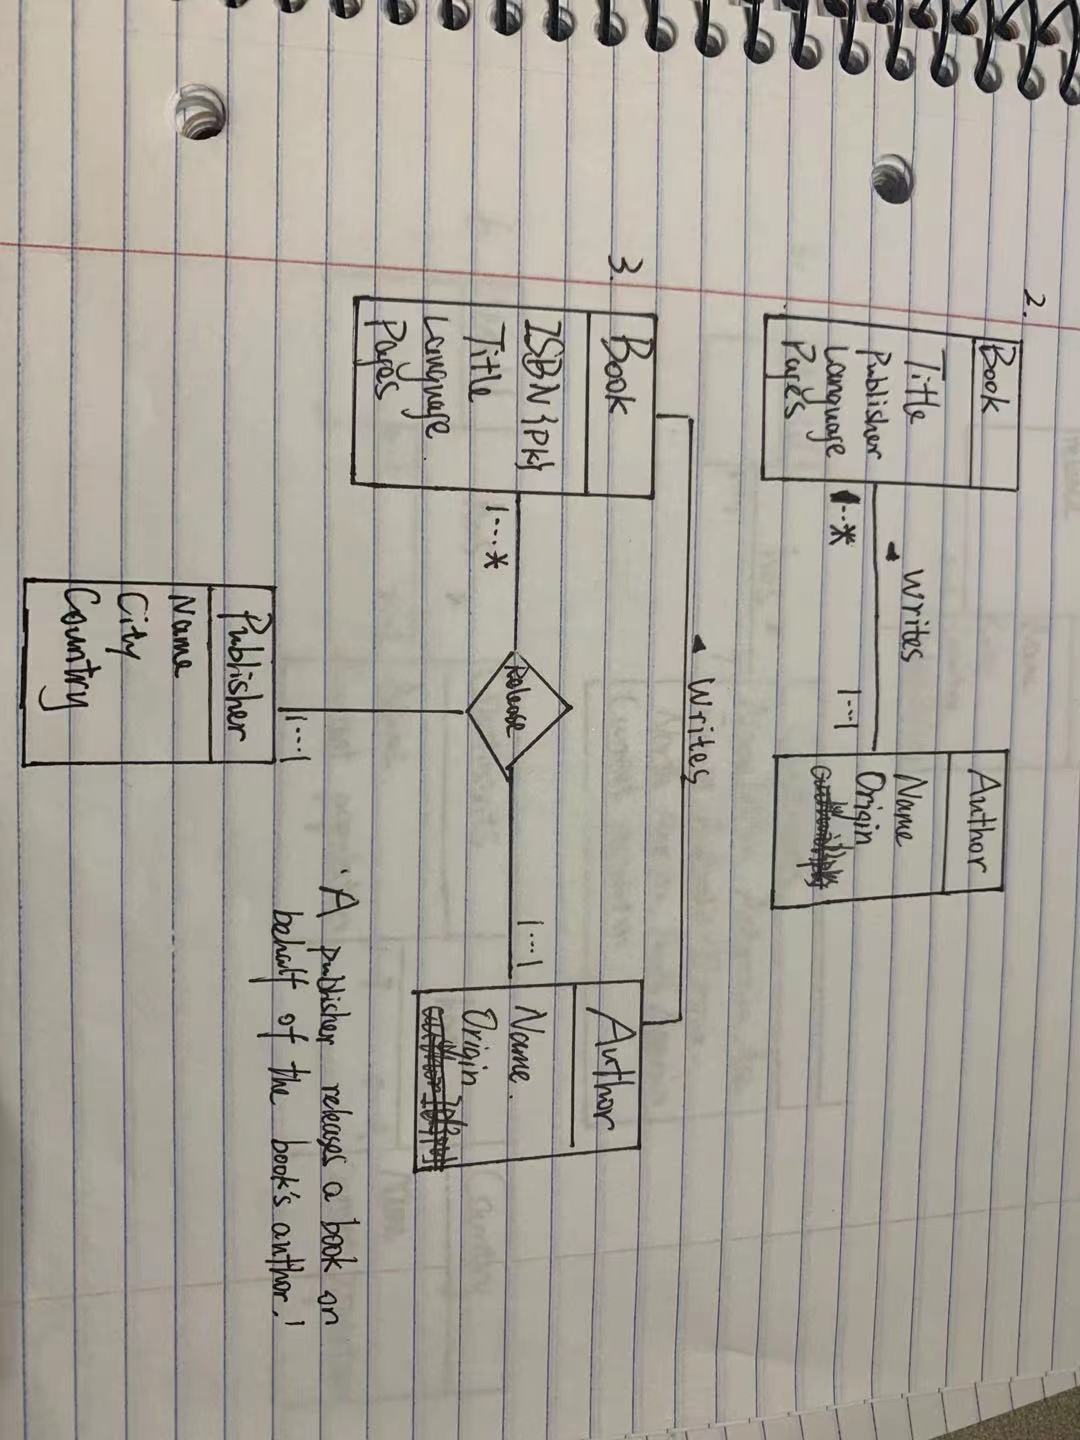 2.
Book
Title
Publisher
Language
Pages
Writes
1..*
1...1
Author
Name
Origin
Writes
3.
Book
ISBN {PK}
Title
Language
Pages
1...*
Release
1...1
Author
Name
Origin
1...1
Publisher
Name
City
Country
'A publisher releases a book on
behalf of the book's author.'